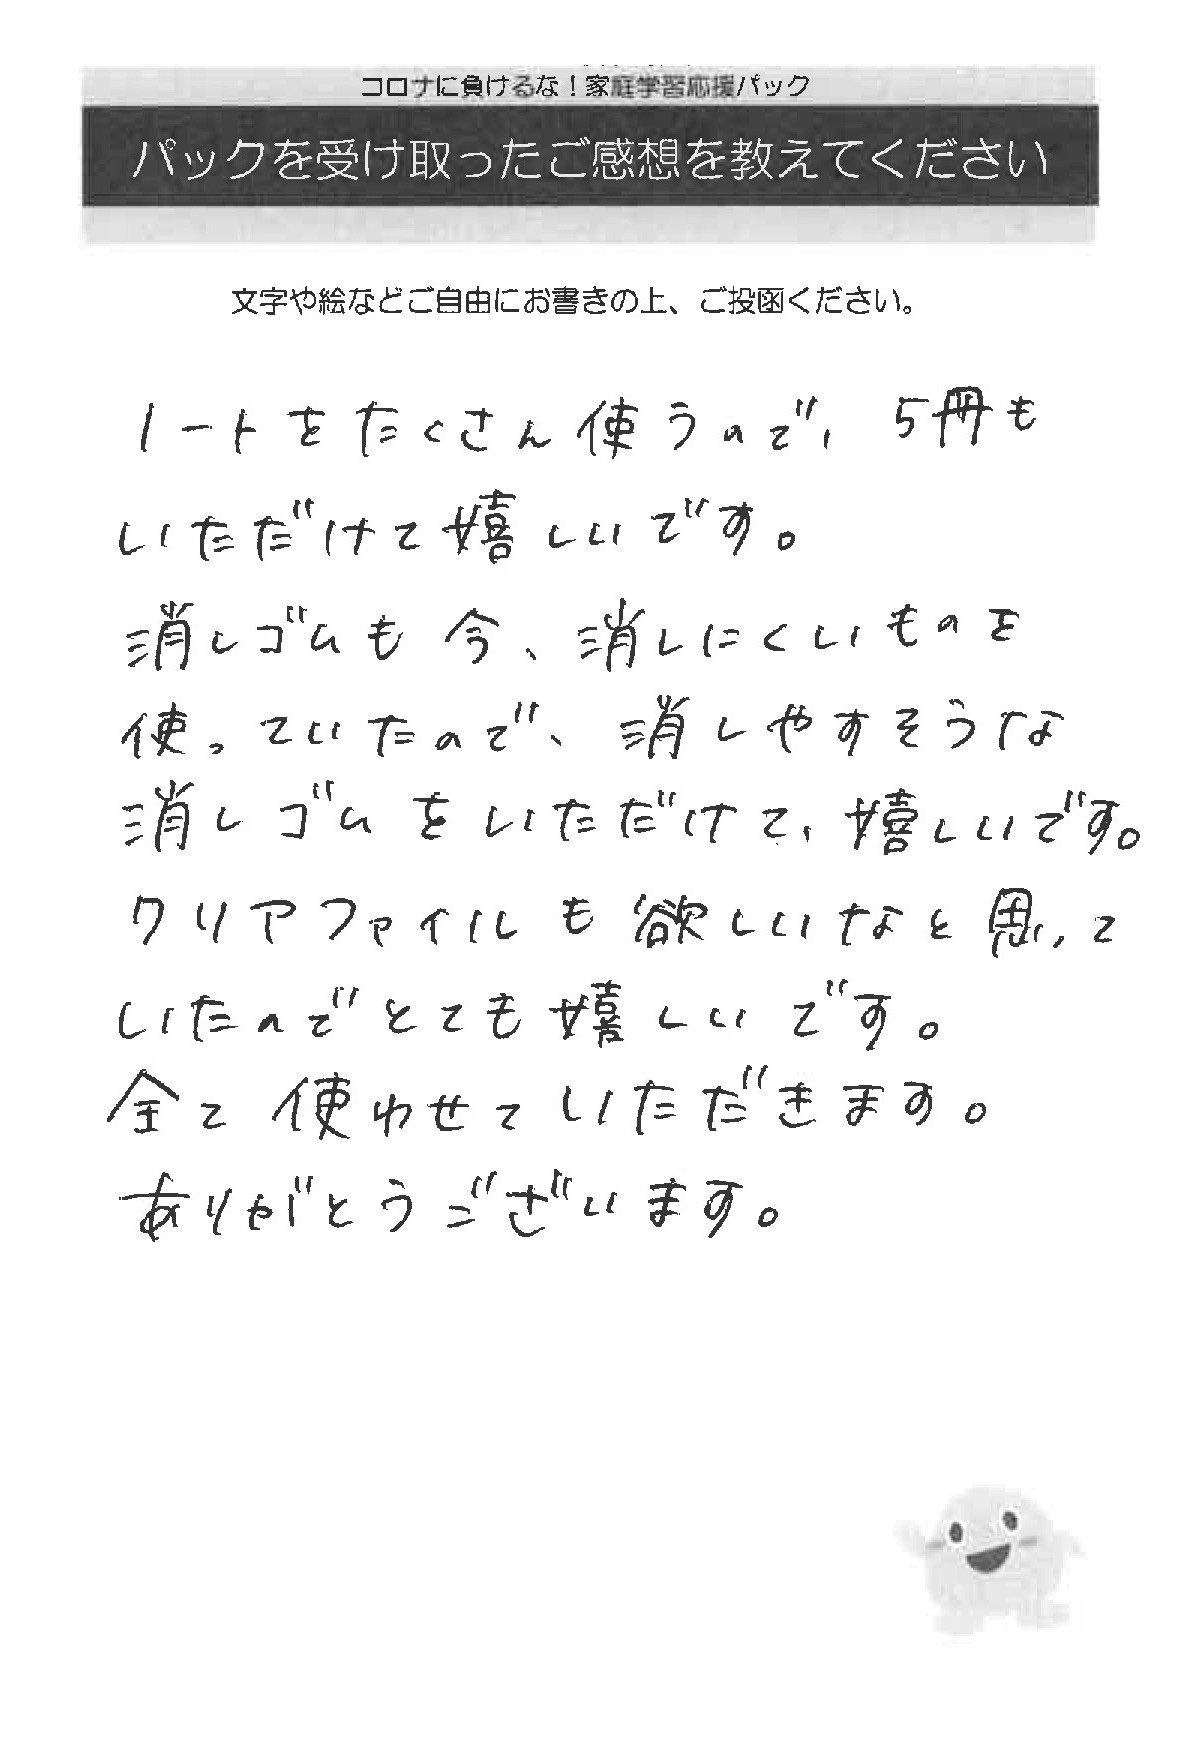 コロナに負けるな！家庭学習応援パック
パックを受け取ったご感想を教えてください
文字や絵などご自由にお書きの上、ご投函ください。
ノートをたくさん使うので、5冊も
いただけて嬉しいです。
消しゴムも今、消しにくいものを
使っていたので、消しやすそうな
消しゴムをいただけて、嬉しいです。
クリアファイルも欲しいなと思って
いたのでとても嬉しいです。
全て使わせていただきます。
ありがとうございます。